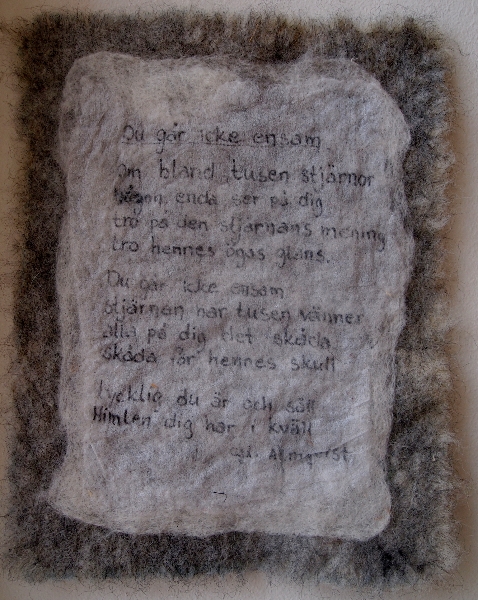 Du går icke ensam
Om bland tusen stjärnor
någon enda ser på dig
tro på den stjärnans mening
tro hennes ögas glans.
Du går icke ensam
stjärnan har tusen vänner
alla på dig det skåda
skåda för hennes skull
lycklig du är och säll
Himlen dig har i kväll
Almqvist